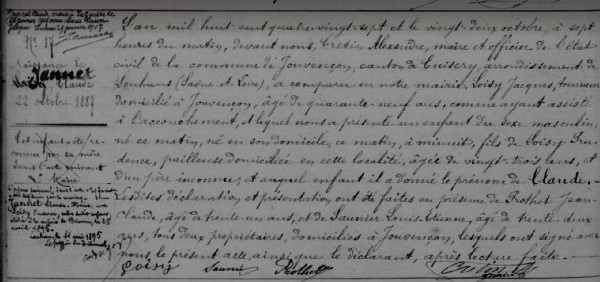 N° 17
Naissance de
Jannet
Claude
22 octobre 1887
Cet enfant a été recon-
nu par sa mère
dans l'acte suivant
Le Maire
L'an mil huit cent quatre-vingt-sept et le vingt-deux octobre, à sept
heures du matin, devant nous, Cretin Alexandre, maire et officier de l'état
civil de la commune de Jouvençon, canton de Cuisery, arrondissement de
Louhans (Saône et Loire), a comparu en notre mairie, Loisy Jacques, tourneur
domicilié à Jouvençon, âgé de quarante-neuf ans, comme ayant assisté
à l'accouchement, et lequel nous a présenté un enfant du sexe masculin,
né ce matin, né en son domicile, ce matin, à minuit, fils de Loisy Pru-
dence, pailleuse domiciliée en cette localité, âgée de vingt-trois ans, et
d'un père inconnu, et auquel enfant il a donné le prénom de Claude.
Lesdites déclaration et présentation ont été faites en présence de Prothet Jean-
Claude, âgé de trente-un ans, et de Saunier Louis-Etienne, âgé de trente-deux
ans, tous deux propriétaires, domiciliés à Jouvençon, lesquels ont signé avec
nous, le présent acte, ainsi que le déclarant, après lecture faite.
Loisy Saunier Prothet